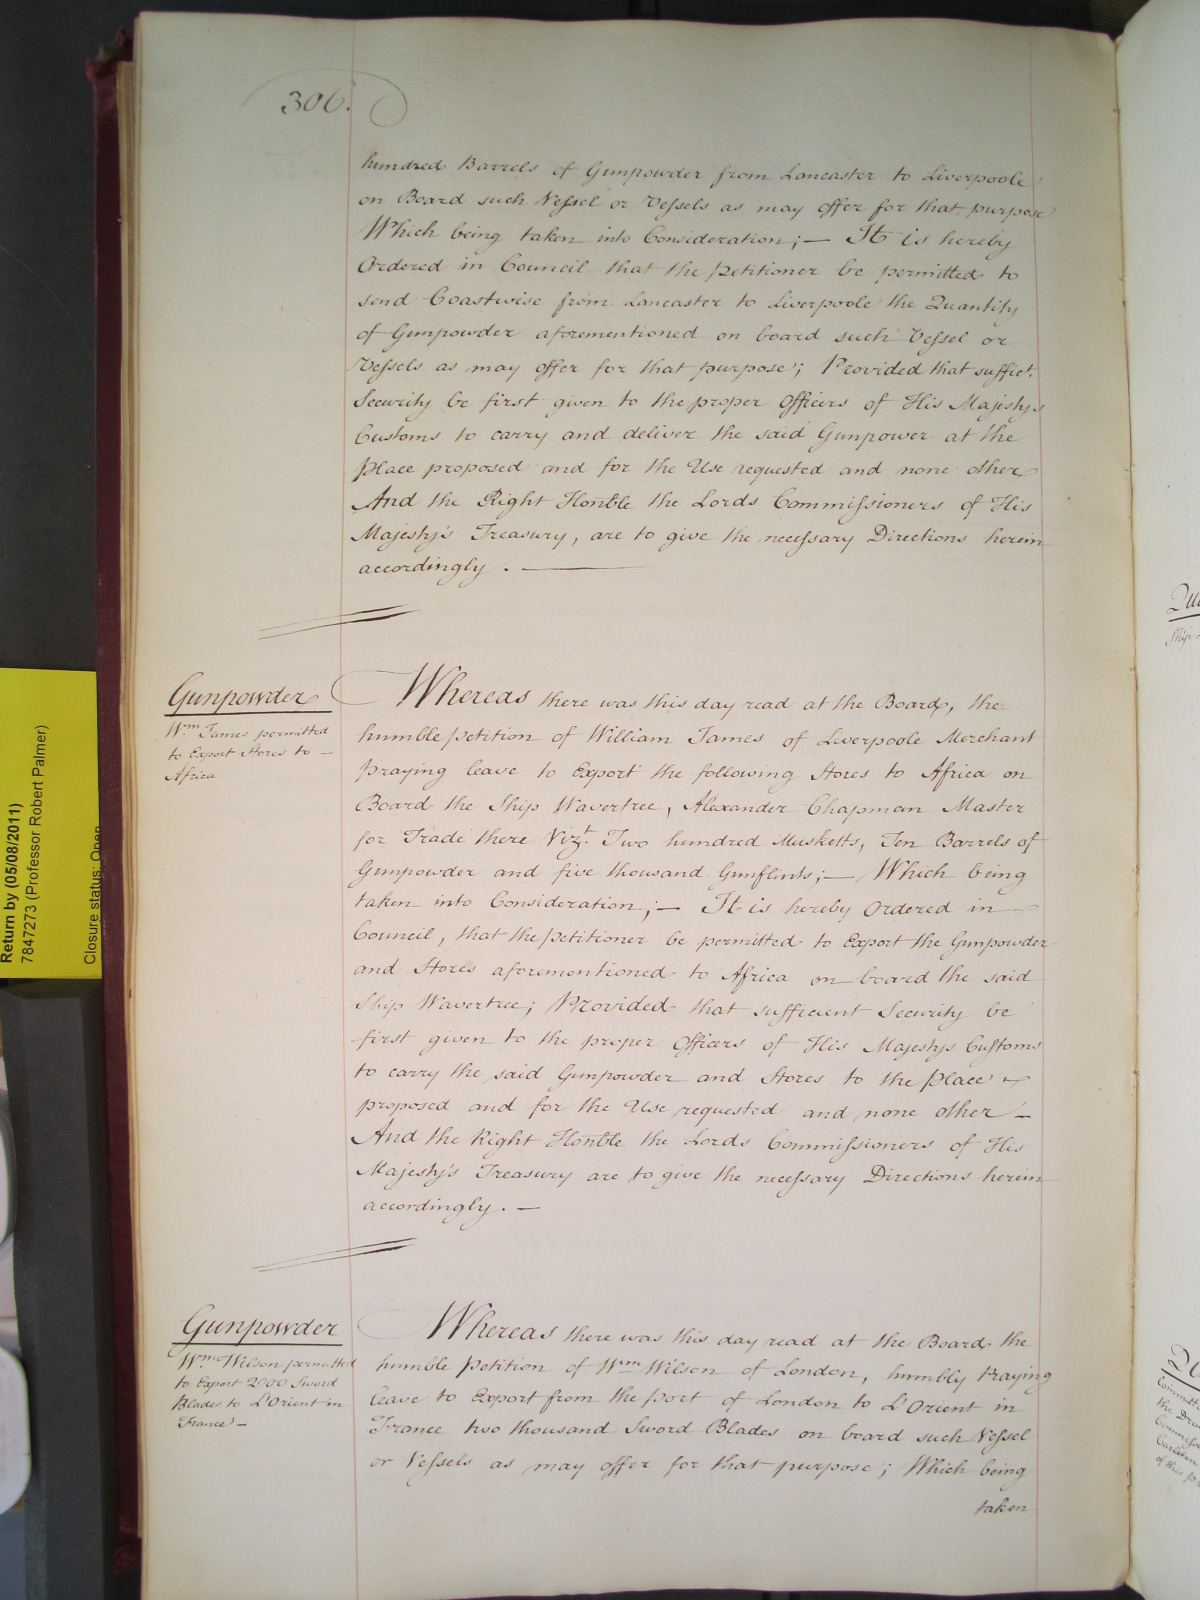 306.
hundred Barrels of Gunpowder from Lancaster to Liverpoole
on Board such Vessel or Vessels as may offer for that purpose
Which being taken into Consideration; — It is hereby
Ordered in Council that the petitioner be permitted to
send Coastwise from Lancaster to Liverpoole the Quantity
of Gunpowder aforementioned on board such Vessel or
Vessels as may offer for that purpose; Provided that suffict.
Security be first given to the proper Officers of His Majestys
Customs to carry and deliver the said Gunpower at the
Place proposed and for the Use requested and none other
And the Right Honble the Lords Commissioners of His
Majesty's Treasury, are to give the necessary Directions herein
accordingly. —
Gunpowder
Wm James permitted
to Export Stores to —
Africa
Whereas there was this day read at the Board, the
humble petition of William James of Liverpoole Merchant
praying leave to Export the following Stores to Africa on
Board the Ship Wavertree, Alexander Chapman Master
for Trade there Vizt. Two hundred Musketts, Ten Barrels of
Gunpowder and five thousand Gunflints; — Which being
taken into Consideration; — It is hereby Ordered in —
Council, that the petitioner be permitted to Export the Gunpowder
and Stores aforementioned to Africa on board the said
Ship Wavertree; Provided that sufficient Security be
first given to the proper Officers of His Majestys Customs
to carry the said Gunpowder and Stores to the Place —
proposed and for the Use requested and none other —
And the Right Honble the Lords Commissioners of His
Majesty's Treasury are to give the necessary Directions herein
accordingly. —
Gunpowder
Wm Wilson permitted
to Export 2000 Sword
Blades to L'Orient in
France —
Whereas there was this day read at the Board the
humble Petition of Wm Wilson of London, humbly Praying
leave to Export from the port of London to L'Orient in
France two thousand Sword Blades on board such Vessel
or Vessels as may offer for that purpose; Which being
taken
Return by (05/08/2011)
7847273 (Professor Robert Palmer)
Closure status: Open
Ship
of this